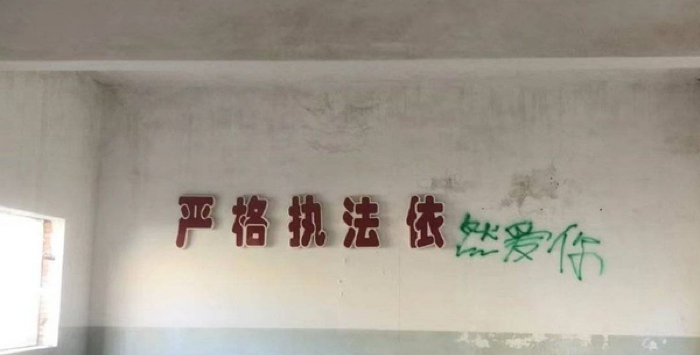 严格执法依然爱你